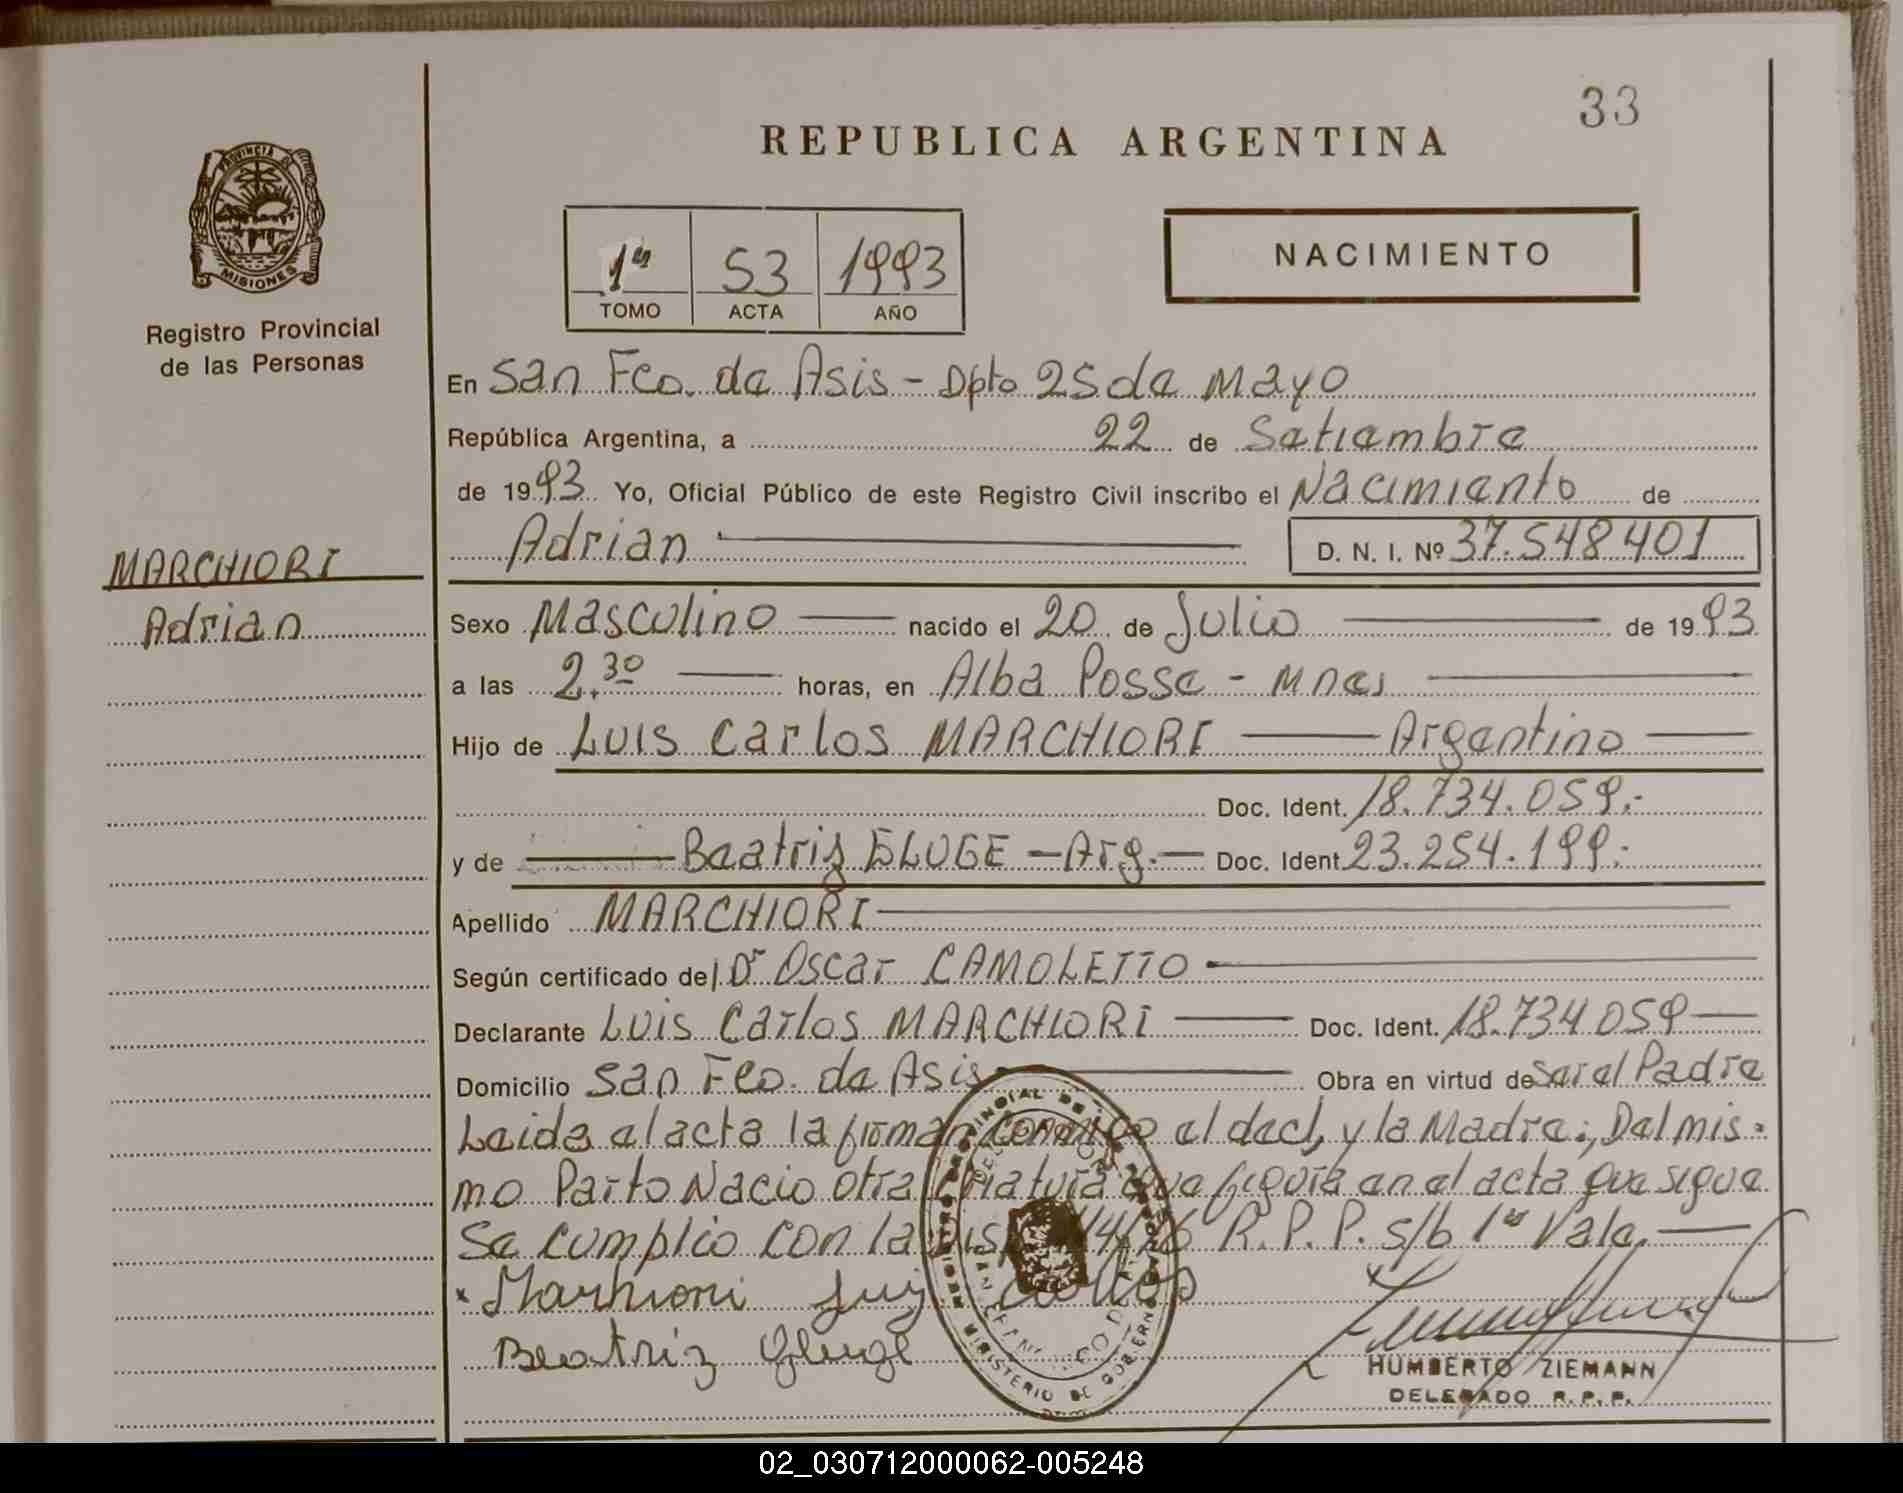 33
REPUBLICA ARGENTINA
PROVINCIA DE
MISIONES
Registro Provincial
de las Personas
1º 53 1993
TOMO ACTA AÑO
NACIMIENTO
En San Fco. de Asis - Dpto 25 de Mayo
República Argentina, a 22 de Setiembre
de 1993 Yo, Oficial Público de este Registro Civil inscribo el Nacimiento de
Adrian D. N. I. Nº 37.548401
MARCHIORI
Adrian
Sexo Masculino nacido el 20 de Julio de 1993
a las 2.30 horas, en Alba Posse - Mnes
Hijo de Luis Carlos MARCHIORI Argentino
Doc. Ident. 18.734.059.-
y de Beatriz GLUGE - Arg. - Doc. Ident. 23.254.199.-
Apellido MARCHIORI
Según certificado del Dr Oscar CAMOLETTO
Declarante Luis Carlos MARCHIORI Doc. Ident. 18.734.059
Domicilio San Fco. de Asis Obra en virtud de Ser el Padre
Leida el acta la firman conmigo el decl, y la Madre., Del mis-
mo Parto Nacio otra criatura que figura en el acta que sigue
Se cumplio con la R. P. P. s/b 1º Vale.
x Marchiori Luiz Carlos
Beatriz Gluge
REGISTRO PROVINCIAL DE LAS PERSONAS
MINISTERIO DE GOBIERNO
HUMBERTO ZIEMANN
DELEGADO R. P. P.
02_030712000062-005248